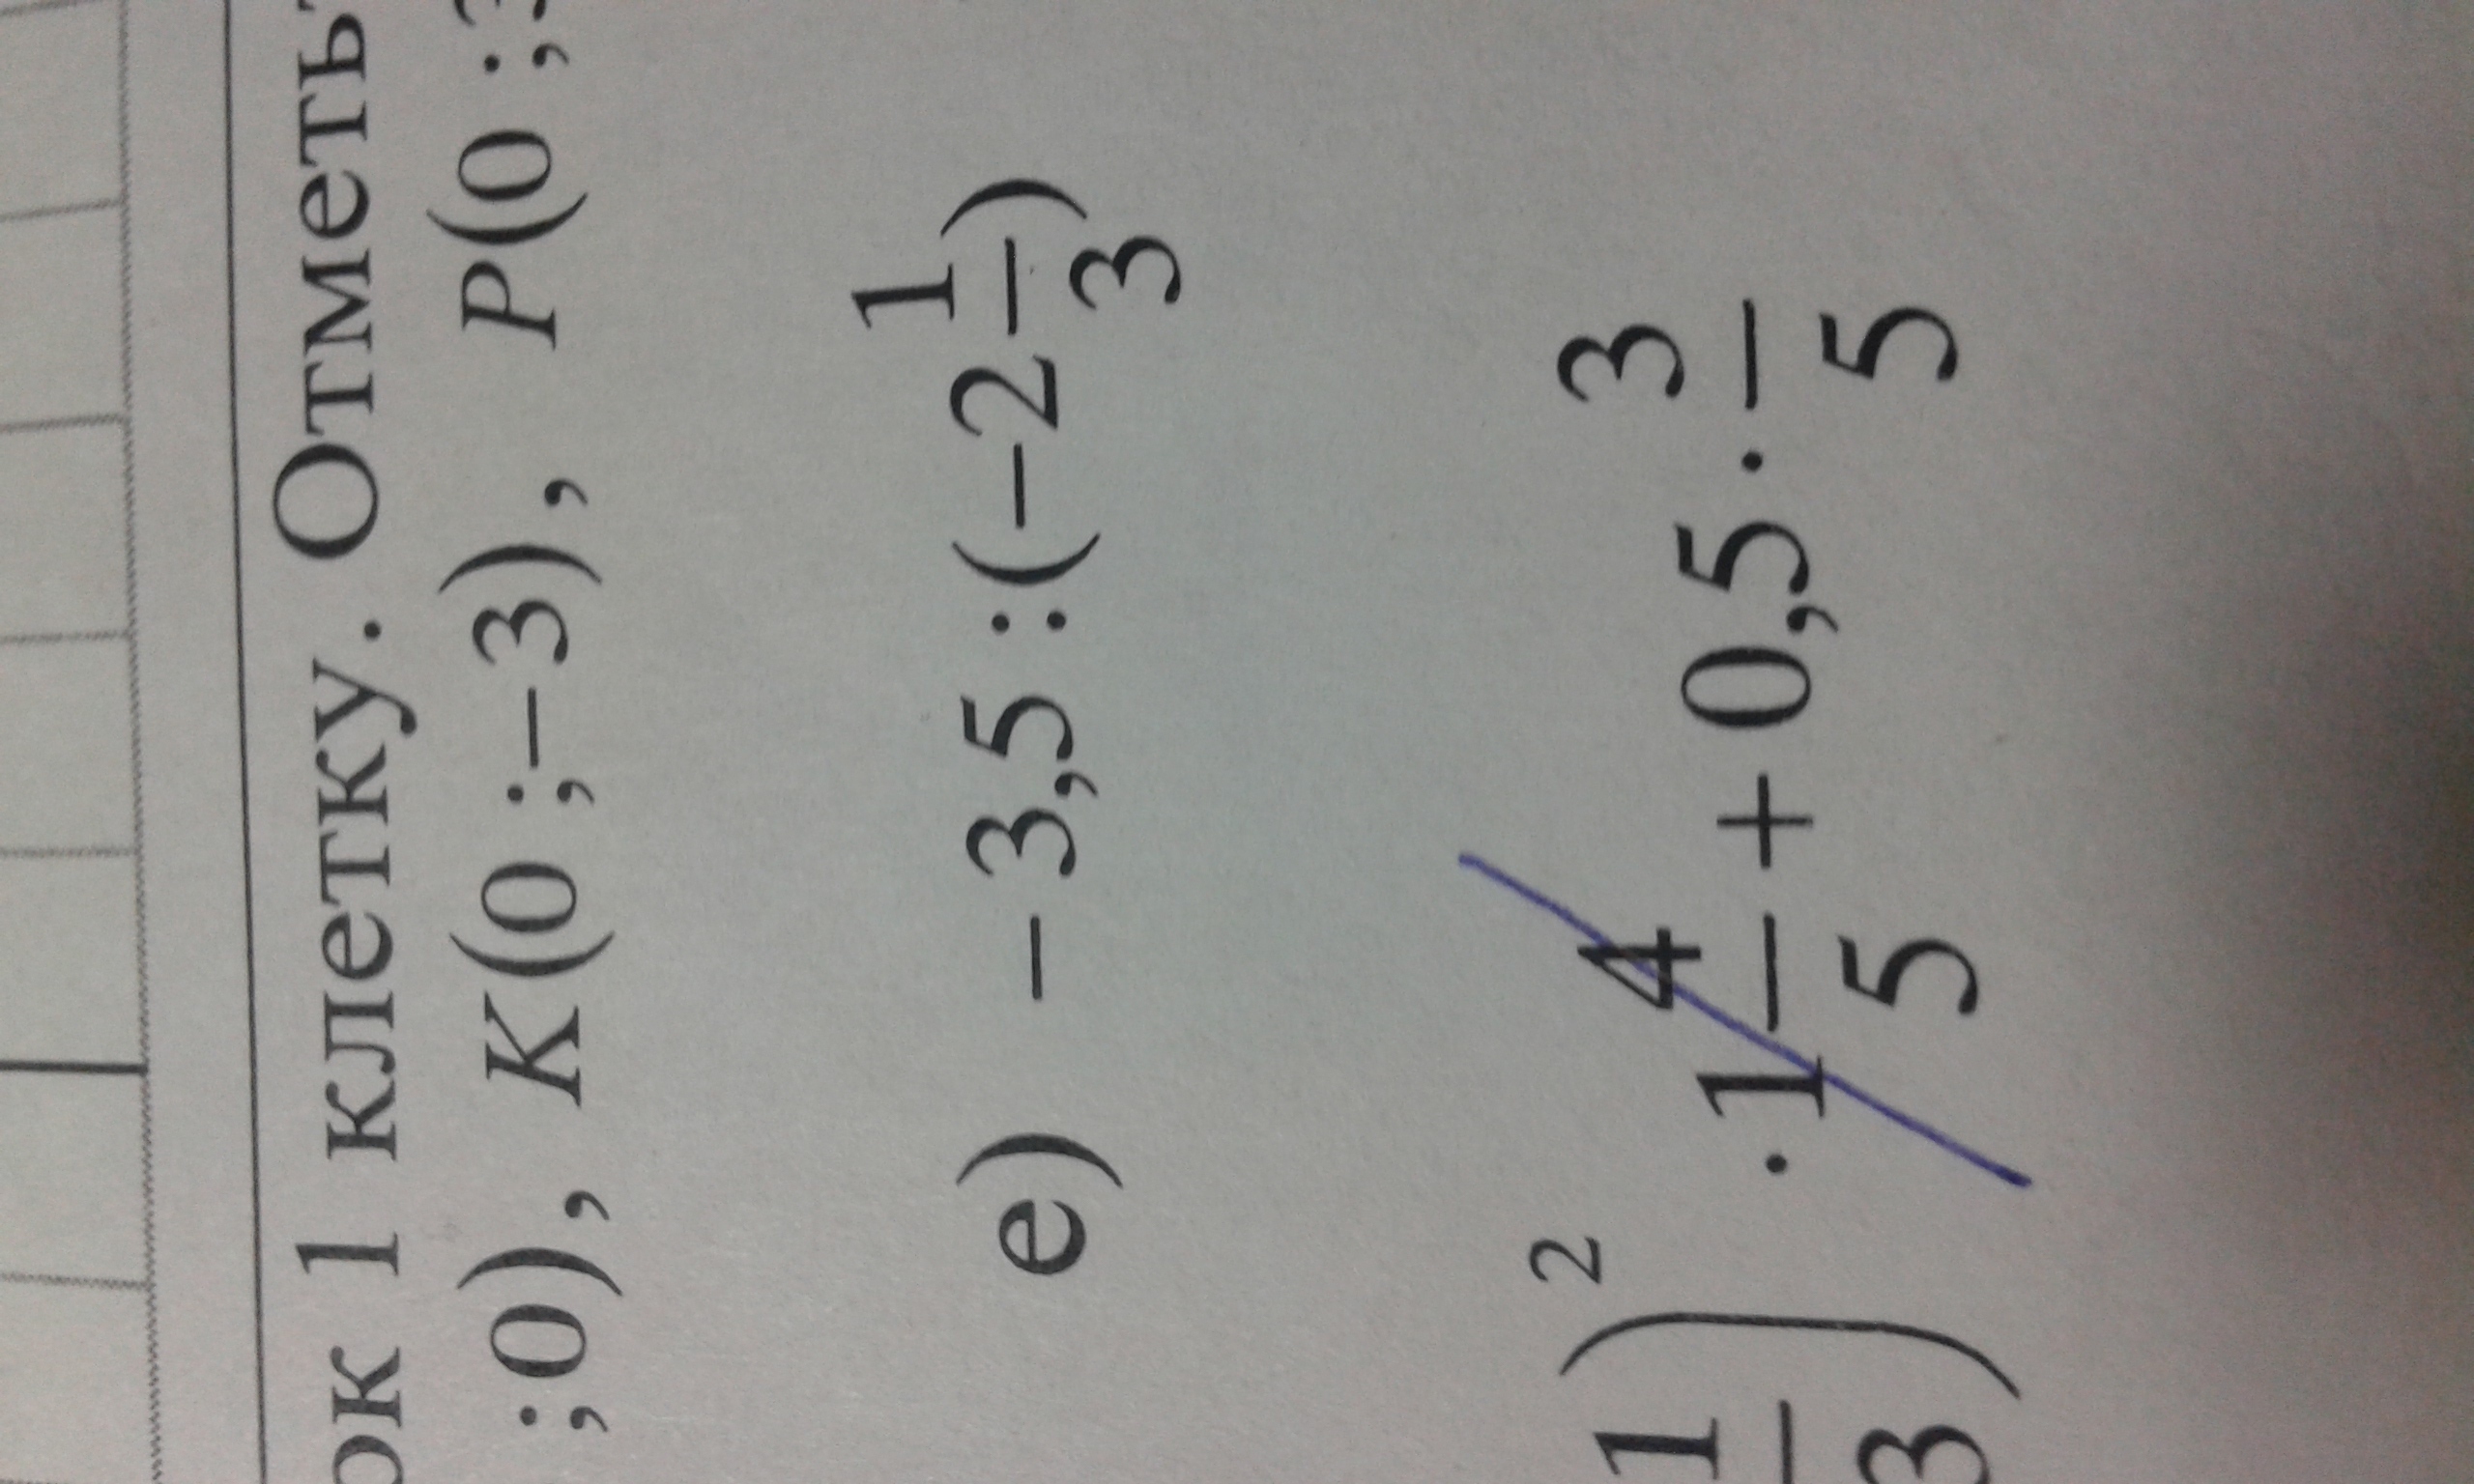 ок 1 клетку. Отметь
;0), K(0 ;−3), P(0 ;3
е) − 3,5 :(−2 1/3)
1/3)² · 1 4/5 + 0,5 · 3/5